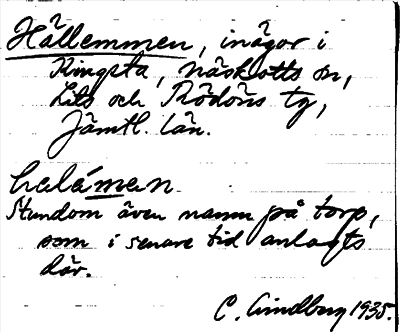 Hällemmen, inägor i
Kingsta, Näskotts sn,
Lits och Rödöns tg,
Jämtl. län.
halámen.
Stundom även namn på torp,
som i senare tid anlagts
där.
C. Lindberg 1935.